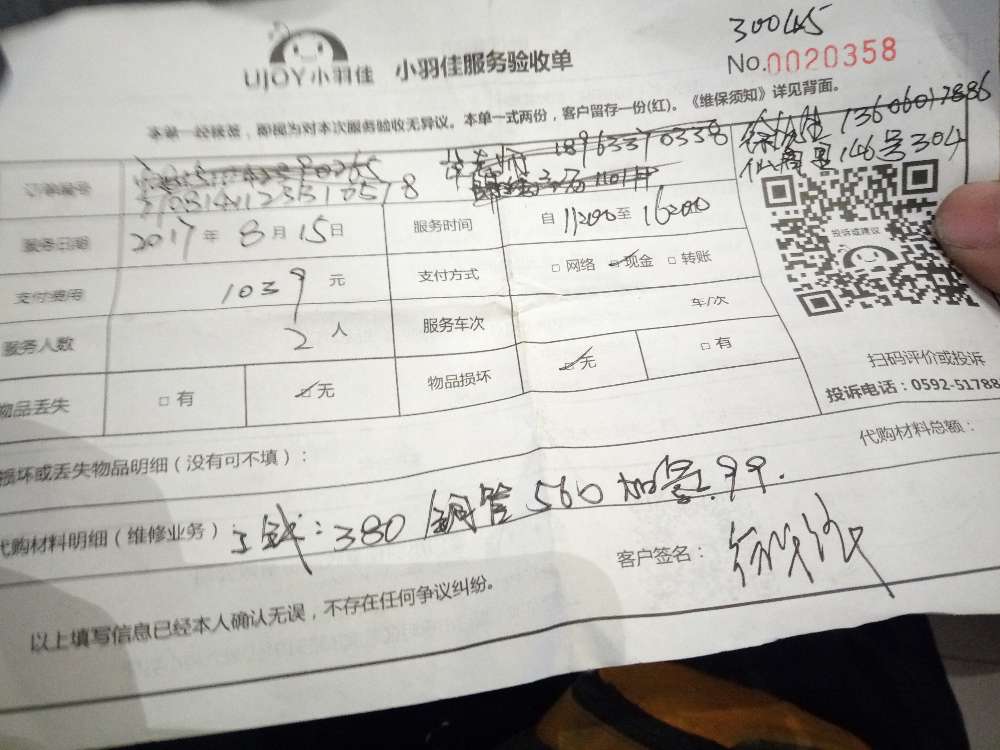 300445
UJOY小羽佳 小羽佳服务验收单 No.0020358
本单一经签署，即视为对本次服务验收无异议。本单一式两份，客户留存一份(红)。《维保须知》详见背面。
13606017886
146号304
订单编号
18963370338
服务日期 2017年8月15日 服务时间 自11200至16200
投诉或建议
支付费用 1039元 支付方式 □网络 □现金 □转账
服务人数 2人 服务车次 车/次
物品丢失 □有 □无 物品损坏 □无 □有
扫码评价或投诉
投诉电话：0592-51788
损坏或丢失物品明细（没有可不填）：
代购材料总额：
代购材料明细（维修业务）工钱：380 铜管560 加氟.99.
客户签名：
以上填写信息已经本人确认无误，不存在任何争议纠纷。